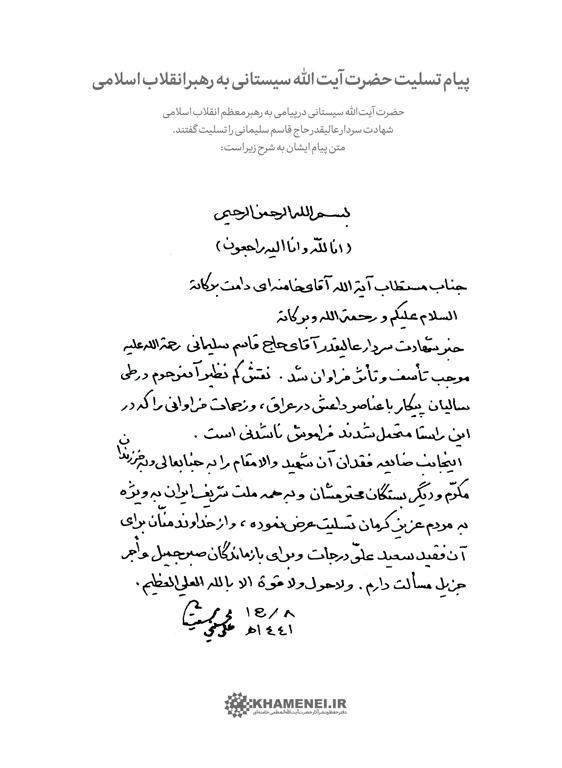 پیام تسلیت حضرت آیت الله سیستانی به رهبر انقلاب اسلامی
حضرت آیت‌الله سیستانی در پیامی به رهبر معظم انقلاب اسلامی
شهادت سردار عالیقدر حاج قاسم سلیمانی را تسلیت گفتند.
متن پیام ایشان به شرح زیر است:
بسم الله الرحمن الرحیم
(انا لله و انا الیه راجعون)
جناب مستطاب آیة الله آقای خامنه‌ای دامت برکاته
السلام علیکم و رحمة الله وبرکاته
خبر شهادت سردار عالیقدر آقای حاج قاسم سلیمانی رحمة الله علیه
موجب تأسف و تأثر فراوان شد. نقش کم نظیر آنمرحوم در طی
سالیان پیکار با عناصر داعش در عراق، و زحمات فراوانی را که در
این راستا متحمل شدند فراموش ناشدنی است.
اینجانب ضایعه فقدان آن شهید والامقام را به جنابعالی وبه فرزندان
مکرّم و دیگر بستگان محترمشان و به همه ملت شریف ایران به ویژه
به مردم عزیز کرمان تسلیت عرض نموده، و از خداوند منّان برای
آن فقید سعید علوّ درجات و برای بازماندگان صبر جمیل و أجر
جزیل مسألت دارم. ولا حول ولا قوة الا بالله العلی العظیم.
۸/ج۱
۱٤٤۱ﻫ
KHAMENEI.IR
دفتر حفظ و نشر آثار حضرت آیت‌الله‌العظمی خامنه‌ای